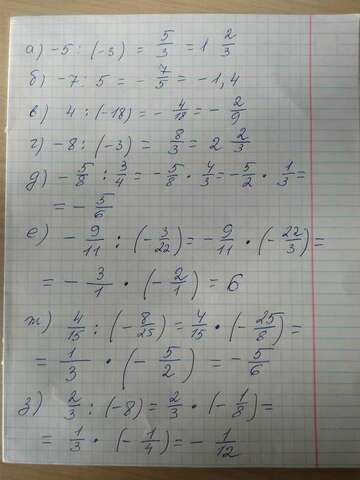 а) -5 : (-3) = 5/3 = 1 2/3
б) -7 : 5 = - 7/5 = -1,4
в) 4 : (-18) = - 4/18 = - 2/9
г) -8 : (-3) = 8/3 = 2 2/3
д) - 5/8 : 3/4 = - 5/8 · 4/3 = - 5/2 · 1/3 =
= - 5/6
е) - 9/11 : (- 3/22) = - 9/11 · (- 22/3) =
= - 3/1 · (- 2/1) = 6
ж) 4/15 : (- 8/25) = 4/15 · (- 25/8) =
= 1/3 · (- 5/2) = - 5/6
з) 2/3 : (-8) = 2/3 · (- 1/8) =
= 1/3 · (- 1/4) = - 1/12